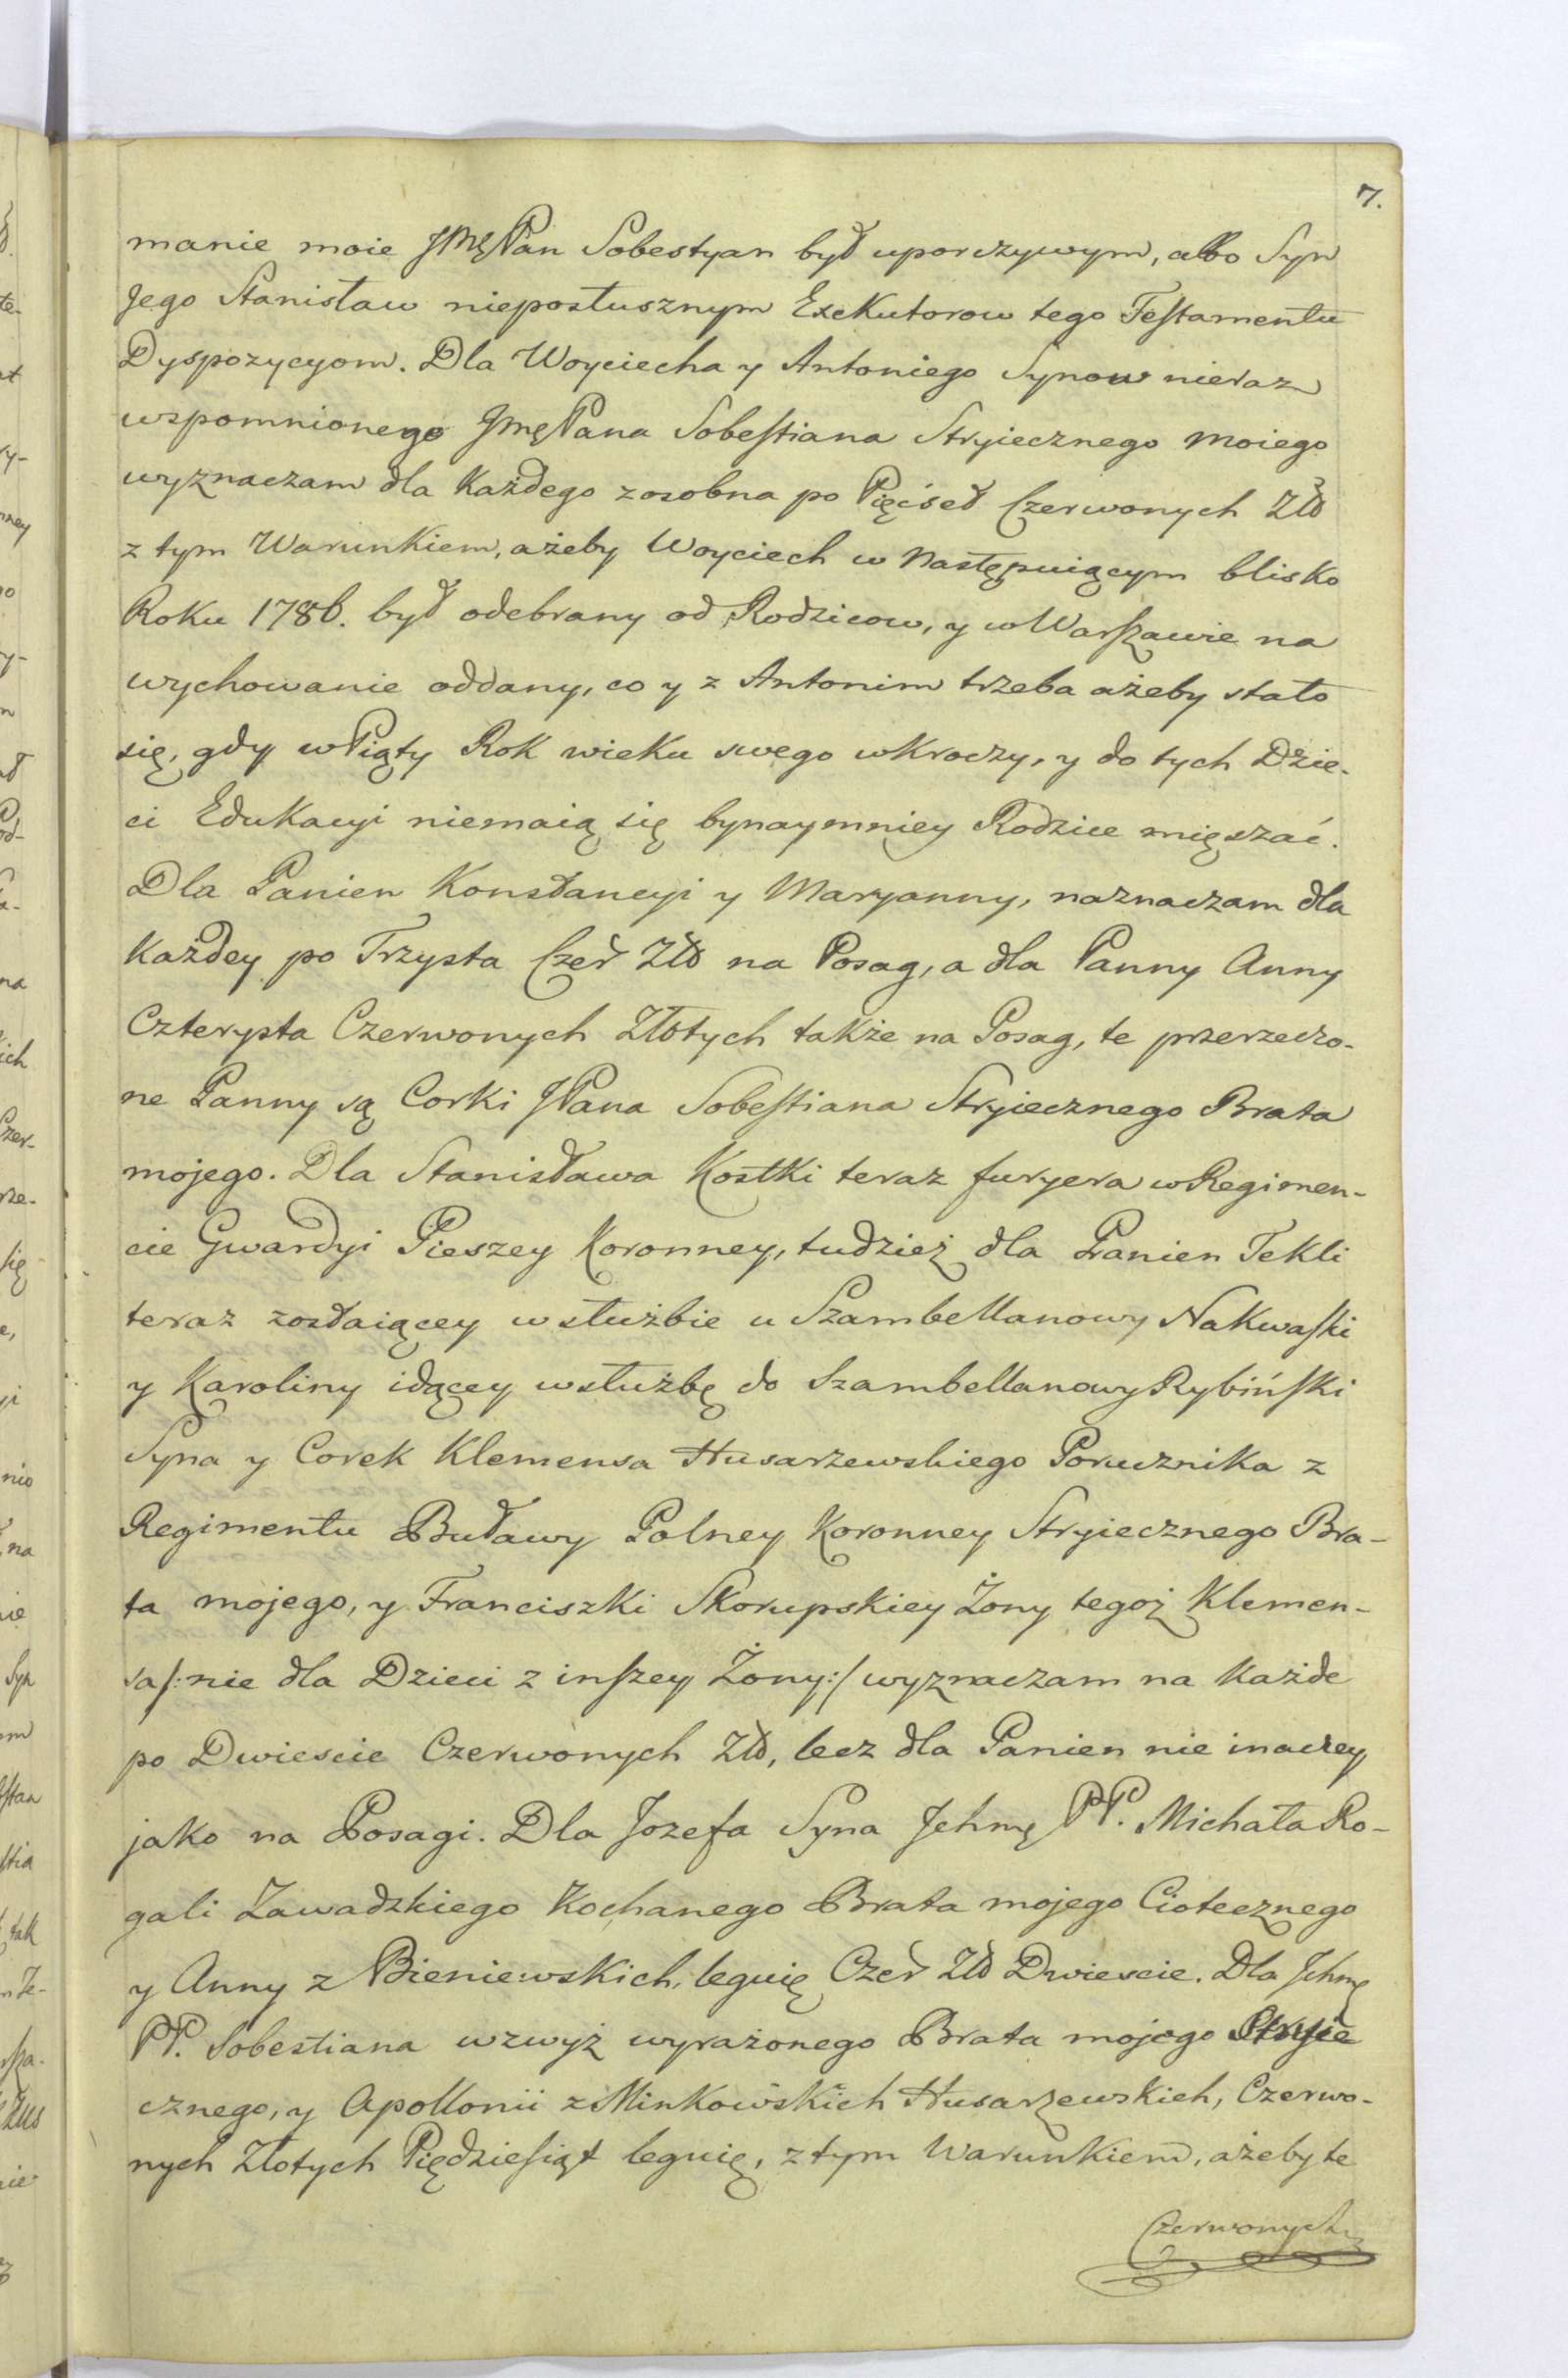 7.
manie moie JMę Pan Sobestyan był uporczywym, albo Syn
Jego Stanisław nieposłusznym Exekutorow tego Testamentu
Dyspozycyom. Dla Woyciecha y Antoniego Synow nieraz
wspomnionego Jmę Pana Sobestiana Stryiecznego moiego
wyznaczam dla każdego zosobna po Pięćset Czerwonych Złł
z tym Warunkiem, ażeby Woyciech w następuiącym blisko
Roku 1786. był odebrany od Rodzicow, y w Warszawie na
wychowanie oddany, co y z Antonim trzeba ażeby stało
się, gdy w Piąty Rok wieku swego wkroczy, y do tych Dzie-
ci Edukacyi niemaią się bynaymniey Rodzice mięszać.
Dla Panien Konstancyi y Maryanny, naznaczam dla
każdey po Trzysta Czer Złł na Posag, a dla Panny Anny
Czterysta Czerwonych Złotych także na Posag, te przerzeczo-
ne Panny są Corki JPana Sobestiana Stryiecznego Brata
mojego. Dla Stanisława Kostki teraz furyera w Regimen-
cie Gwardyi Pieszey Koronney, tudzież dla Panien Tekli
teraz zostaiącey w służbie u Szambellanowy Nakwaski
y Karoliny idącey w służbę do Szambellanowy Rybiński
Syna y Corek Klemensa Husarzewskiego Porucznika z
Regimentu Buławy Polney Koronney Stryiecznego Bra-
ta mojego, y Franciszki Skorupskiey Żony tegoż Klemen-
sa /: nie dla Dzieci z inszey Żony :/ wyznaczam na każde
po Dwiescie Czerwonych Złł, lecz dla Panien nie inaczey
jako na Posagi. Dla Jozefa Syna Jchmę PP. Michała Ro-
gali Zawadzkiego Kochanego Brata mojego Ciotecznego
y Anny z Bieniewskich, leguię Czer Złł Dwiescie. Dla Jchmę
PP. Sobestiana wzwyż wyrażonego Brata mojego Stryie
cznego, y Apollonii z Minkowskich Husarzewskich, Czerwo-
nych Złotych Piędziesiąt leguię, z tym Warunkiem, ażeby te
Czerwonych